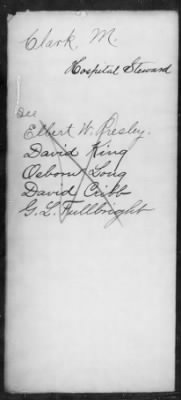 Clark, M.
Hospital Steward
See
Elbert W. Presley.
David King
Osborn Long
David Cribb
G. L. Fullbright